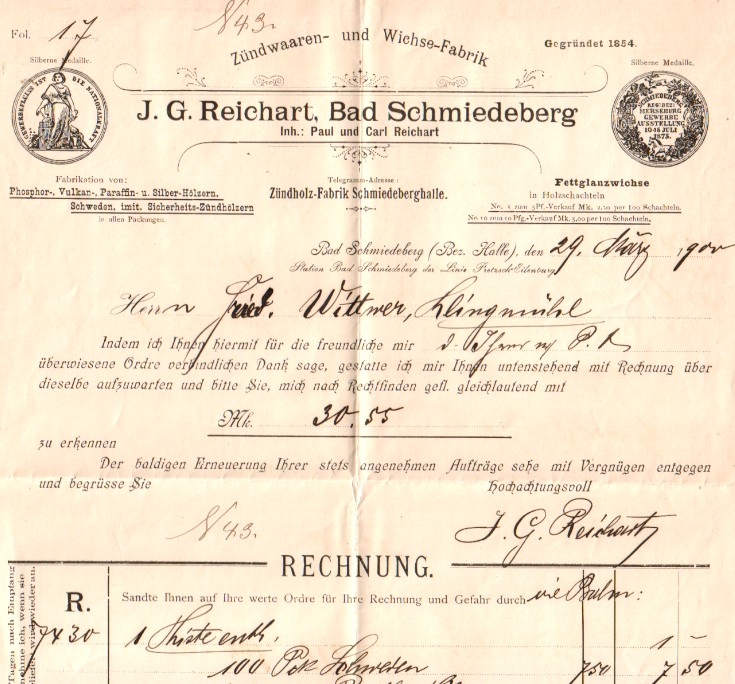 Fol. 17
N 43.
Zündwaaren- und Wichse-Fabrik
Gegründet 1854.
Silberne Medaille.
Silberne Medaille.
GEWERBEFLEISS IST DIE NATIONALKRAFT
SCHMIEDEBERG
REG: BEZ:
MERSEBURG
GEWERBE
AUSSTELLUNG
10-18 JULI
1875.
J. G. Reichart, Bad Schmiedeberg
Inh.: Paul und Carl Reichart
Fabrikation von:
Phosphor-, Vulkan-, Paraffin- u. Silber-Hölzern,
Schweden, imit. Sicherheits-Zündhölzern
in allen Packungen.
Telegramm-Adresse:
Zündholz-Fabrik Schmiedeberghalle.
Fettglanzwichse
in Holzschachteln
No. 5 zum 5Pf.-Verkauf Mk. 2,10 per 100 Schachteln.
No. 10 zum 10 Pfg.-Verkauf Mk. 3,00 per 100 Schachteln.
Bad Schmiedeberg (Bez. Halle), den 29. März 1900
Station Bad Schmiedeberg der Linie Pretzsch-Eilenburg
Herrn Fried. Wittwer, Klingmühl
Indem ich Ihnen hiermit für die freundliche mir
überwiesene Ordre verbindlichen Dank sage, gestatte ich mir Ihnen untenstehend mit Rechnung über
dieselbe aufzuwarten und bitte Sie, mich nach Rechtfinden gefl. gleichlautend mit
Mk. 30.55
zu erkennen
Der baldigen Erneuerung Ihrer stets angenehmen Aufträge sehe mit Vergnügen entgegen
und begrüsse Sie Hochachtungsvoll
N 43.
J. G. Reichart
RECHNUNG.
R. Sandte Ihnen auf Ihre werte Ordre für Ihre Rechnung und Gefahr durch
Tagen nach Empfang
nehme ich, wenn sie
wird wieder an.
7430 1 Kiste enth. 1 –
100 Pck Schweden 7 50 7 50